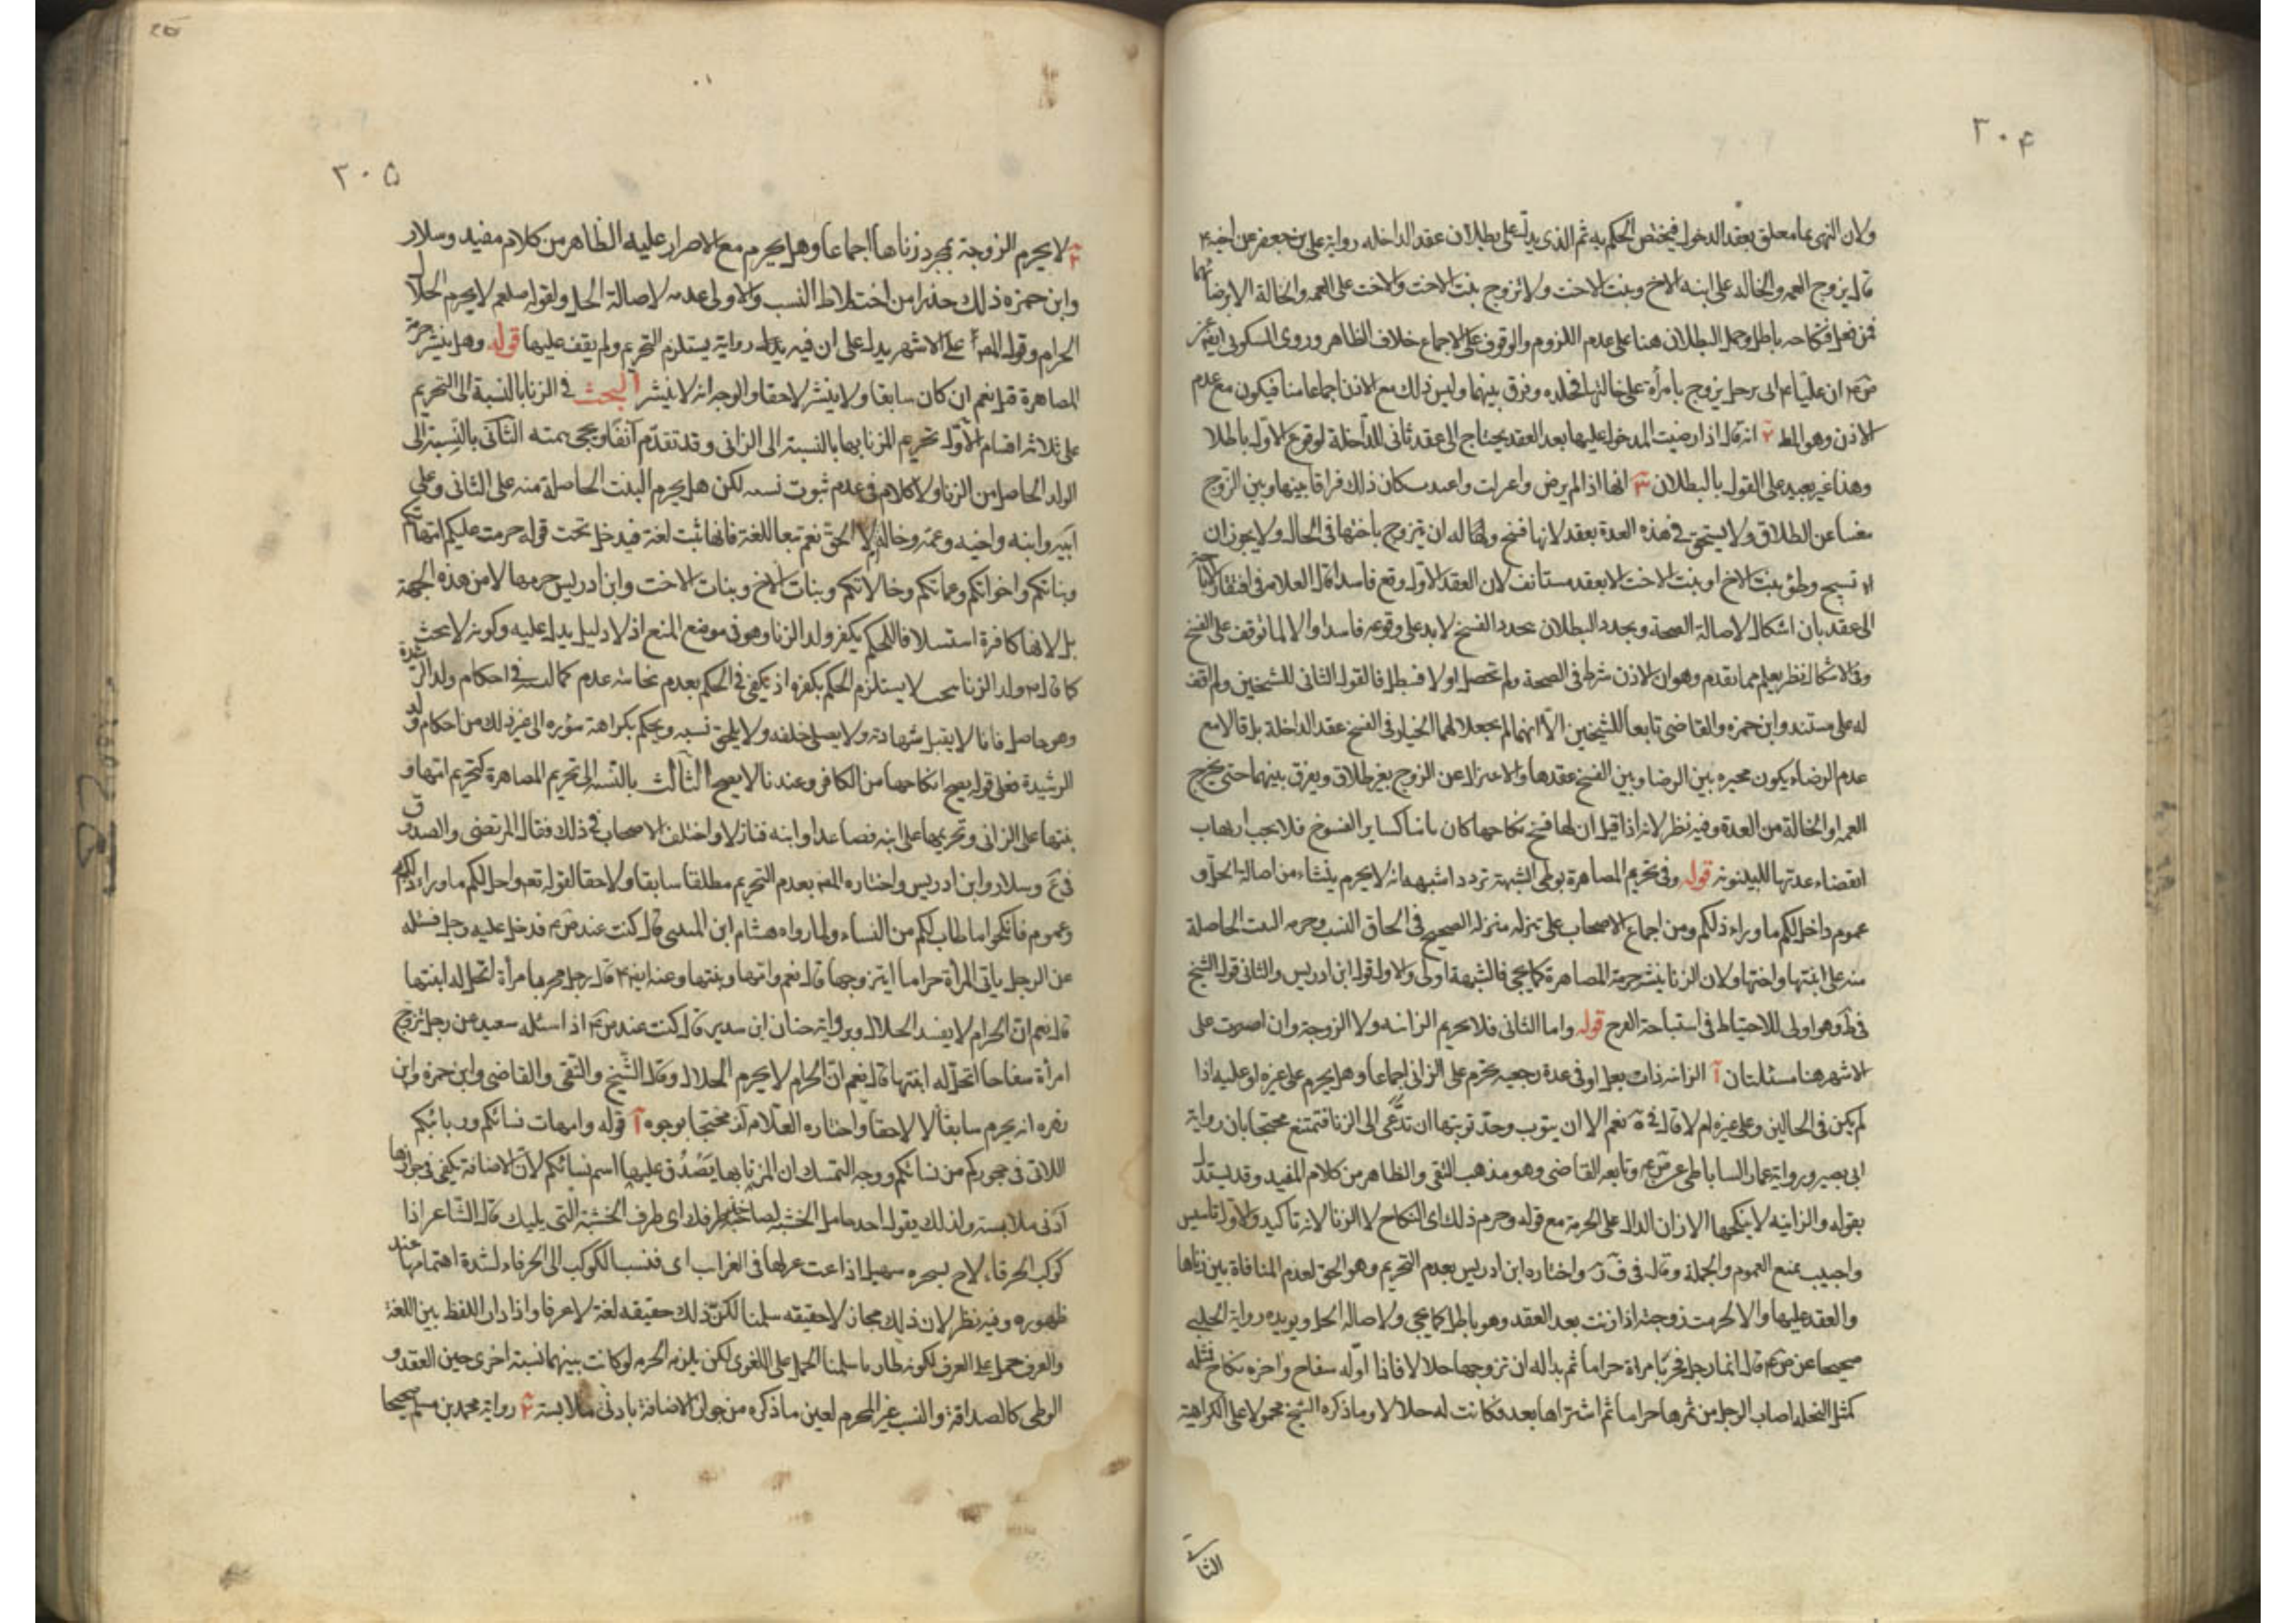 ٣٠۴
ولان النهى انما معلق بعقد الدخول فيختص الحكم به ثم الذى يدل على بطلان عقد الداخله رواية على بن جعفر عن اخيه ۴
قال يزوج العمه والخاله على ابنه الاخ وبنت الاخت ولا تزوج بنت الاخت والاخت على العمه والخالة الا برضائهما
فمن فعل فنكاحه باطل وحمل البطلان هنا على عدم اللزوم والوقوف على الاجماع خلاف الظاهر وروى السكونى ايضا عن
ان عليا ع اتى برجل يزوج بامرأة على خالتها فجلده وفرق بينهما وليس ذلك مع الاذن اجماعا منا فيكون مع عدم
الاذن وهو المط ٢ انه قال اذا رضيت المدخول عليها بعد العقد يحتاج الى عقد ثانى للداخلة لوقوع الاول باطلا
وهذا غير بعيد على القول بالبطلان ٣ انها اذا لم يرض واعرلت واعتدت كان ذلك فراقا بينها وبين الزوج
مغنيا عن الطلاق ولا يستحق فى هذه العدة بعقد لانها فسخ ولهذا له ان يتزوج باختها فى الحال ولا يجوز ان
يستبيح وطئ بنت الاخ او بنت الاخت الا بعقد مستانف لان العقد الاول وقع فاسدا قال العلامه فى افتقار
الى عقد بان اشكال لاصالة الصحة وتجدد البطلان بتجدد الفسخ لا يدل على وقوعه فاسدا والا لما توقف على الفسخ
وفى الاشكال نظر يعلم مما تقدم وهو ان الاذن شرط فى الصحة ولم تحصل اولا فيبطل فالقول الثانى للشيخين ولم اقف
له على مستند وابن حمزه والقاضى تابعا للشيخين الا انهما لم يجعلا لهما الخيار فى الفسخ عقد الداخلة بل قالا مع
عدم الرضاء يكون مخيره بين الرضا وبين الفسخ عقدها والاعتزال عن الزوج بغير طلاق ويفرق بينهما حتى يخرج
العمه او الخالة من العدة وفيه نظر لانه اذا قيل ان لها فسخ نكاحها كان باينا كساير الفسوخ فلا يجب ارتقاب
انقضاء عدتها للبينونه قوله وفى تحريم المصاهرة بوطى الشبهة تردد اشبهه انه لا يحرم ينشاء من اصالة الحل و
عموم واحل لكم ما وراء ذلكم ومن اجماع الاصحاب على تنزله منزله الصحيح فى الحاق النسب وحرمه البنت الحاصلة
منه على ابنتها واختها ولان الزنا ينشر حرمة المصاهرة كما يجى فالشبهة اولى والاول قول ابن ادريس والثانى قول الشيخ
فى ط وهو اولى للاحتياط فى استباحة الفرج قوله واما الثانى فلا تحريم الزانيه ولا الزوجة وان اصرت على
الاشهر هنا مسئلتان آ الزانيه ذات بعل او فى عدة رجعيه يحرم على الزانى اجماعا وهل يحرم على غيره او عليه اذا
لم يكن فى الحالين وعلى غيره ام لا قال فى ية نعم الا ان يتوب وحد توبتها ان تدعى الى الزنا فتمتنع محتجا بان رواية
ابى بصير ورواية عمار الساباطى عن ق ع وتابعه القاضى وهو مذهب التقى والظاهر من كلام المفيد وقد يستدل
بقوله والزانيه لا ينكحها الا زان الدال على الحرمة مع قوله وحرم ذلك اى النكاح لا الزنا لانه تاكيد والاول تاسيس
واجيب بمنع العموم والجملة وقال فى ف ر واختاره ابن ادريس بعدم التحريم وهو الحق لعدم المنافاة بين زناها
والعقد عليها والا لحرمت زوجته اذا زنت بعد العقد وهو باطل كما يجى ولاصاله الحل ويويده رواية الحلبى
صحيحا عن ص ع قال ايما رجل فجر بامراة حراما ثم بدا له ان تزوجها حلالا فاذا اوله سفاح واخره نكاح فمثله
كمثل النخله اصاب الرجل من ثمرها حراما ثم اشتراها بعد فكانت له حلالا وما ذكره الشيخ محمول على الكراهية
الثا
٣٠۵
٢ لا يحرم الزوجة بمجرد زناها اجماعا وهل يحرم مع الاصرار عليه الظاهر من كلام مفيد وسلار
وابن حمزه ذلك حذرا من اختلاط النسب والاولى عدمه لاصالة الحل ولقوله صلعم لا يحرم الحلال
الحرام وقول المص على الاشهر يدل على ان فيه رواية يستلزم التحريم ولم يقف عليها قوله وهل ينشر حرمة
المصاهرة قيل نعم ان كان سابقا ولا ينشر لاحقا والوجه انه لا ينشر البحث فى الزنا بالنسبة الى التحريم
على ثلاثه اقسام الاول تحريم المزنا بها بالنسبة الى الزانى وقد تقدم آنفا ويجى بمته الثانى بالنسبة الى
الولد الحاصل من الزنا ولا كلام فى عدم ثبوت نسبه لكن هل يحرم البنت الحاصلة منه على الثانى وعلى
ابيه وابنه واخيه وعمه وخاله ام لا الحق نعم تبعا للغة فانها بنت لغة فيدخل تحت قوله حرمت عليكم امهاتكم
وبناتكم واخواتكم وعماتكم وخالاتكم وبنات الاخ وبنات الاخت وابن ادريس حرمها لا من هذه الجهة
بل لانها كافرة استسلافا للحكم بكفر ولد الزنا وهو فى موضع المنع اذ لا دليل يدل عليه وكونه لا يحث
كما قال ولد الزنا لا يستلزم الحكم بكفره اذ يكفى فى الحكم بعدم نجاسته عدم كماله فى احكام ولد الرشدة
وهو حاصل فانا لا يقبل شهادته ولا يصلى خلفه ولا يلحق نسبه ويحكم بكراهة سؤره الى غير ذلك من احكام ولد
الرشيدة فعلى قوله يصح انكاحها من الكافر وعندنا لا يصح الثالث بالنسبه الى تحريم المصاهرة كتحريم امها و
بنتها على الزانى وتحريمها على ابيه فصاعدا وابنه فنازلا واختلف الاصحاب فى ذلك فقال المرتضى والصدوق
فى ع وسلار وابن ادريس واختاره المص بعدم التحريم مطلقا سابقا ولاحقا لقوله تعم واحل لكم ما وراء ذلكم
وعموم فانكحوا ما طاب لكم من النساء ولما رواه هشام ابن المثنى قال كنت عند ص ع فدخل عليه رجل فسئله
عن الرجل ياتى المرأة حراما ايتزوجها قال نعم وامها وبنتها وعنه ايضا ۴ قال رجل فجر بامرأة اتحل له ابنتها
قال نعم ان الحرام لا يفسد الحلال وبرواية حنان ابن سدير قال كنت عند ص ع اذا سئله سعيد عن رجل تزوج
امرأة سفاحا اتحل له ابنتها قال نعم ان الحرام لا يحرم الحلال وقال الشيخ والتقى والقاضى وابن حمزه وابن
زهره انه يحرم سابقا لا لاحقا واختاره العلامه محتجا بوجوه آ قوله وامهات نسائكم وربائبكم
اللاتى فى حجوركم من نسائكم ووجه التمسك ان المزنى بها يصدق عليها اسم نسائكم لان الاضافة يكفى فى جوازها
ادنى ملابسة ولذلك يقول احد حامل الخشبه لصاحبه خذ طرفك اى طرف الخشبة التى يليك قال الشاعر اذا
كوكب الخرقاء لاح بسحره سهيل اذاعت غزلها فى الغرايب اى فنسب الكوكب الى الخرقاء لشدة اهتمامها عند
ظهوره وفيه نظر لان ذلك مجاز لا حقيقه سلمنا لكن ذلك حقيقه لغة لا عرفا واذا دار اللفظ بين اللغة
والعرف حمل على العرف لكونه طاريا سلمنا الحمل على اللغوى لكن يلزم الحرمه لو كانت بينهما نسبة اخرى حين العقد و
الوطى كالصداقة والنسب غير المحرم لعين ما ذكره من جواز الاضافة بادنى ملابسة ٢ رواية محمد بن مسلم صحيحا